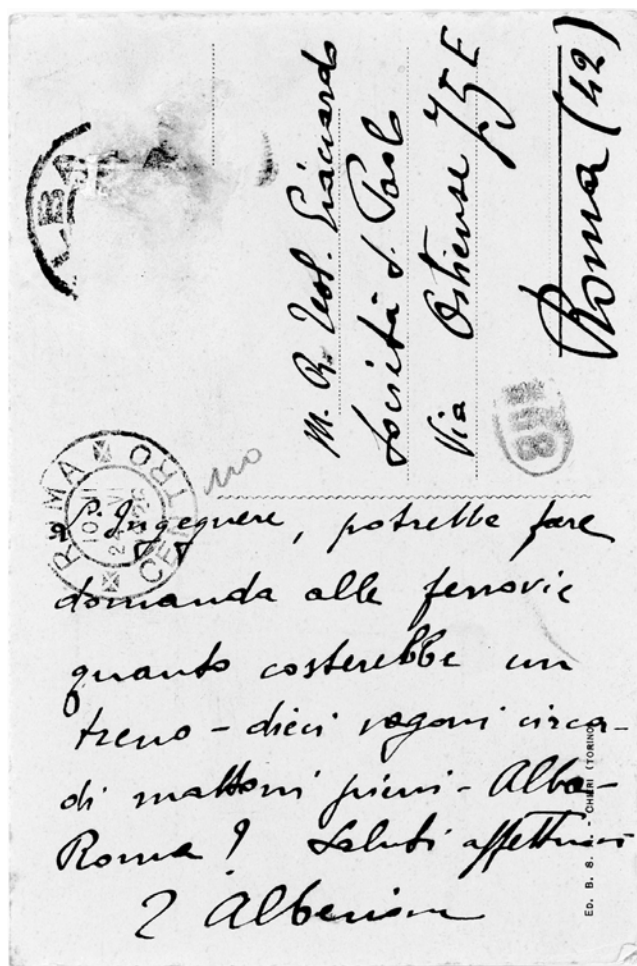 M. R. Teol. Giaccardo
Società S. Paolo
Via Ostiense 75 E
Roma (42)
ALBA
ROMA
CENTRO
no
L'Ingegnere, potrebbe fare
domanda alle ferrovie
quanto costerebbe un
treno - dieci vagoni circa -
di mattoni pieni - Alba -
Roma? Saluti affettuosi
Alberione
ED. B. S. - CHIERI (TORINO)